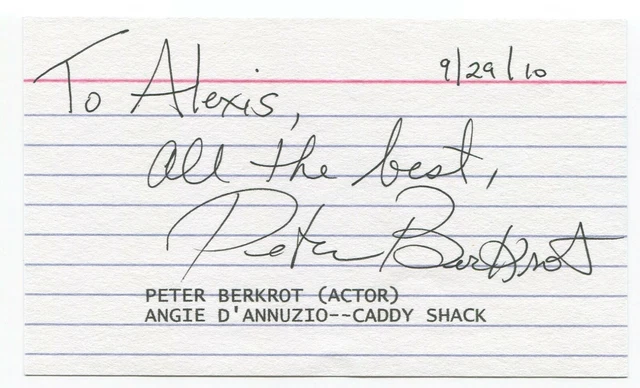 9/29/10
To Alexis,
all the best,
Peter Berkrot
PETER BERKROT (ACTOR)
ANGIE D'ANNUZIO--CADDY SHACK